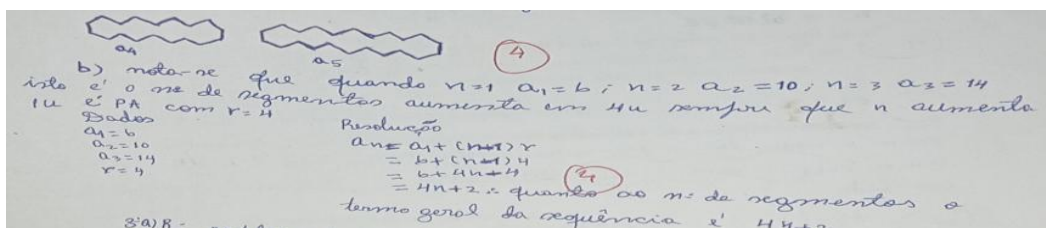 a4 a5
4
b) nota-se que quando n=1 a1=6; n=2 a2=10; n=3 a3=14
isto é o nº de segmentos aumenta em 4u sempre que n aumenta
1u é PA com r=4
Dados
a1=6
a2=10
a3=14
r=4
Resolução
an= a1+(n-1)r
= 6+(n-1)4
= 6+4n-4
4
= 4n+2 ∴ quanto ao nº de segmentos o
termo geral da sequência é 4n+2
3ª)R-